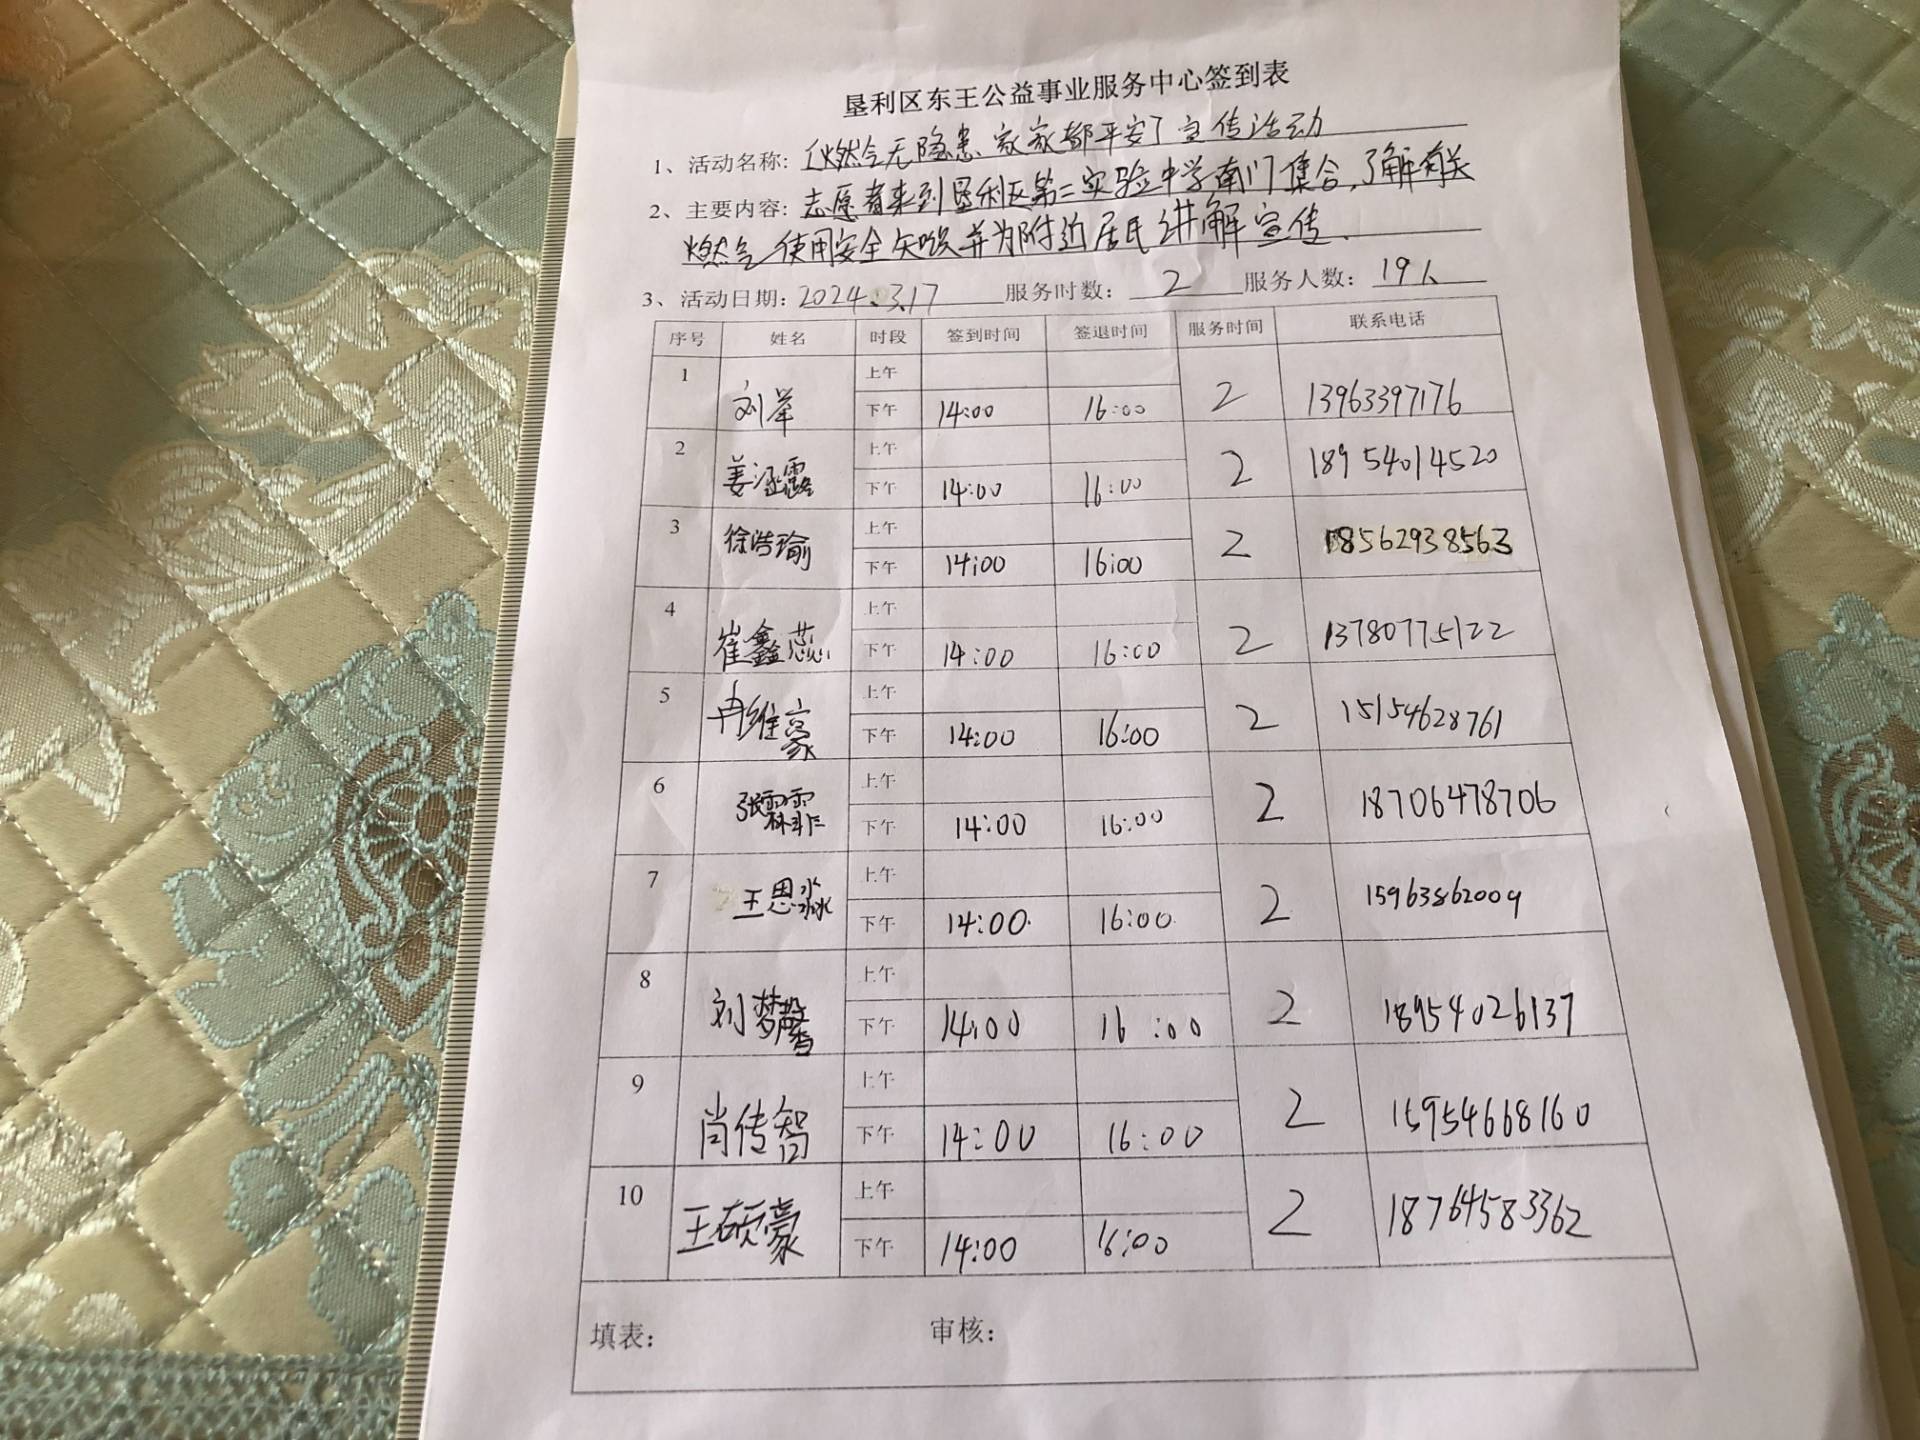 垦利区东王公益事业服务中心签到表
1、活动名称: “燃气无隐患 家家都平安” 宣传活动
2、主要内容: 志愿者来到垦利区第二实验中学南门集合,了解有关
燃气使用安全知识并为附近居民讲解宣传.
3、活动日期: 2024.3.17 服务时数: 2 服务人数: 19人
序号 姓名 时段 签到时间 签退时间 服务时间 联系电话
1 刘举 上午
下午 14:00 16:00 2 13963397176
2 姜涵露 上午
下午 14:00 16:00 2 18954014520
3 徐浩瑜 上午
下午 14:00 16:00 2 18562938563
4 崔鑫蕊 上午
下午 14:00 16:00 2 13780775122
5 冉维豪 上午
下午 14:00 16:00 2 15154628761
6 张霖菲 上午
下午 14:00 16:00 2 18706478706
7 王思淼 上午
下午 14:00 16:00 2 15963862009
8 刘梦馨 上午
下午 14:00 16:00 2 18954026137
9 肖传智 上午
下午 14:00 16:00 2 15954668160
10 王硕豪 上午
下午 14:00 16:00 2 18764583362
填表: 审核: